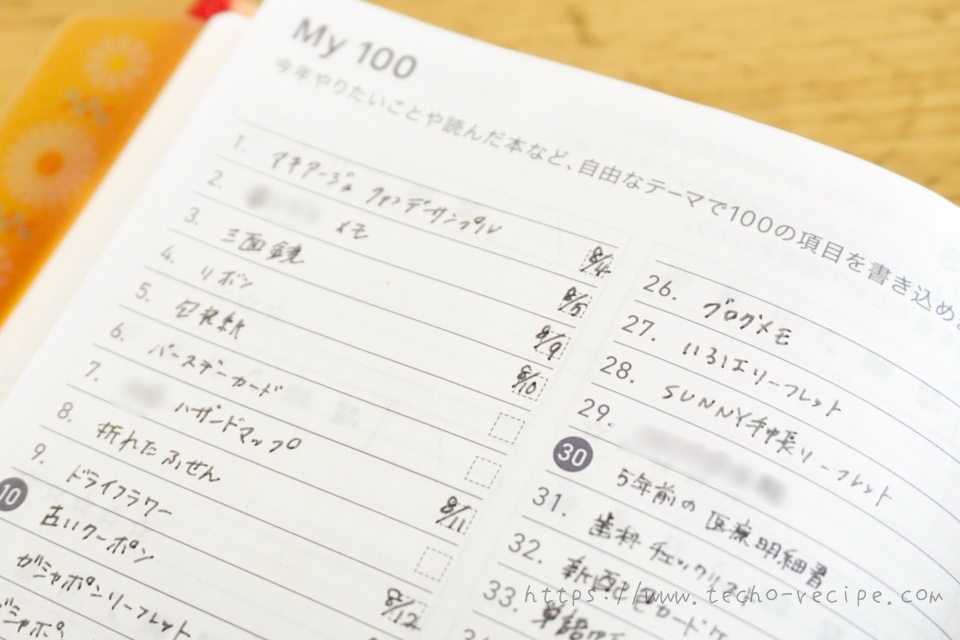 My 100
今年やりたいことや読んだ本など、自由なテーマで100の項目を書き込め
1. マキアージュ ファンデサンプル 8/4
2. メモ 8/5
3. 三面鏡 8/9
4. リボン 8/10
5. 包装紙
6. バースデーカード
7. ハザードマップ 8/11
8. 折れたふせん
9. ドライフラワー 8/12
10 古いクーポン
ガシャポンリーフレット
ガシャポ
26. ブログメモ
27. いろはエリーフレット
28. SUNNY手帳リーフレット
29.
30 5年前の医療明細書
31. 歯科チェックリスト
32.
33. 単語
https://www.techo-recipe.com